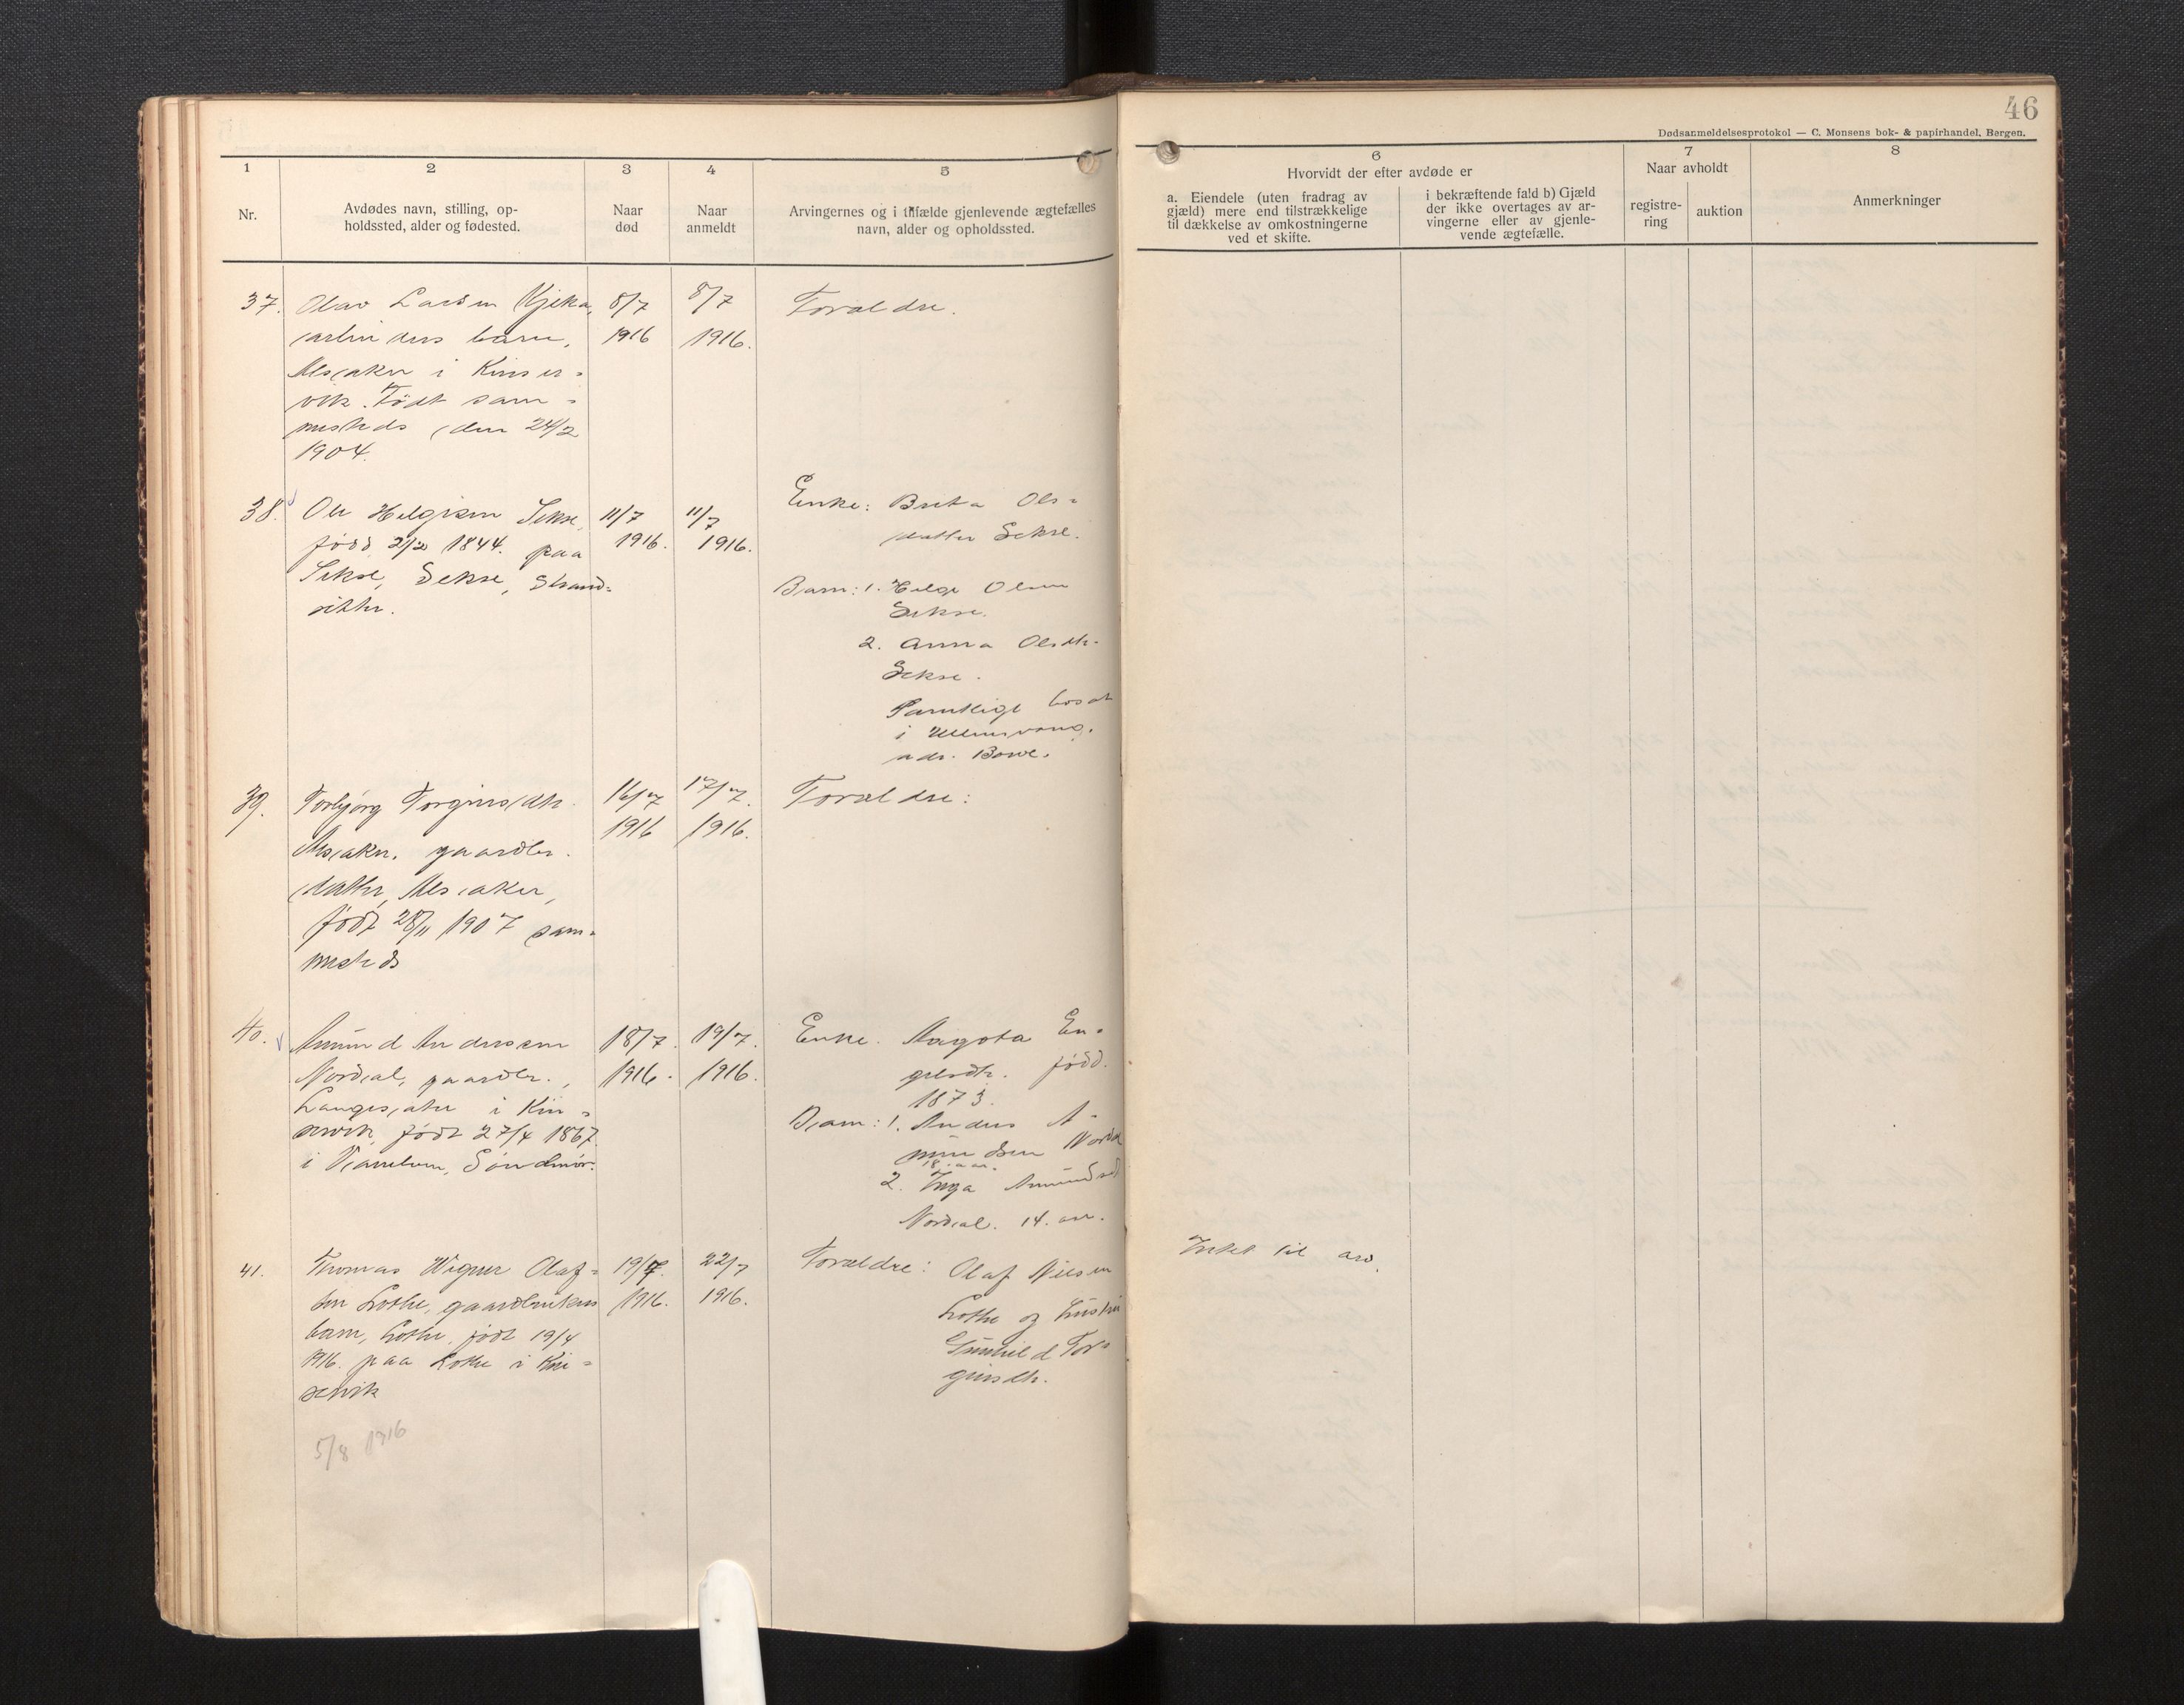 46
Dødsanmeldelsesprotokol — C. Monsens bok- & papirhandel, Bergen.
1
Nr.
2
Avdødes navn, stilling, op-
holdssted, alder og fødested.
3
Naar
død
4
Naar
anmeldt
5
Arvingernes og i tilfælde gjenlevende ægtefælles
navn, alder og opholdssted.
6
Hvorvidt der efter avdøde er
a. Eiendele (uten fradrag av
gjæld) mere end tilstrækkelige
til dækkelse av omkostningerne
ved et skifte.
i bekræftende fald b) Gjæld
der ikke overtages av ar-
vingerne eller av gjenle-
vende ægtefælle.
7
Naar avholdt
registre-
ring
auktion
8
Anmerkninger
37.
Olav Larsen
barn,
i Kinser-
vik. Født sam-
mesteds den 24/2
1904.
8/7
1916
8/7
1916.
Forældre.
38.
Ole Helgesen Sekse,
født 2/2 1844. paa
Sekse, Sekse, Strand-
sitter.
11/7
1916.
11/7
1916.
Enke: Brita Ols-
datter Sekse.
Barn: 1. Helge Olsen
Sekse.
2. Anna Olsdtr.
Sekse.
Samtlige bosat
i Ullensvang,
adr. Børve.
39.
Torbjørg Torgeirsdtr.
gaardbr.
datter,
født 28/11 1907 sam-
mesteds
16/7
1916
17/7.
1916.
Forældre:
40.
Amund Andersen
Nordal, gaardbr.,
Langesæter i Kin-
servik, født 27/4 1867
i Søndmør.
18/7.
1916.
19/7.
1916.
Enke. Magota En-
gelsdtr. født.
1873.
Barn: 1. Anders A-
mundsen Nordal
18. aar.
2. Inga Amundsd
Nordal. 14. aar.
41.
Thomas Wigner Olaf-
sen Lothe, gaardbrukers
barn, Lothe, født 19/4
1916. paa Lothe i Kin-
servik
19/7.
1916.
22/7
1916.
Forældre: Olaf Nilsen
Lothe og hustru
Gunhild Tor-
geirsdtr.
Intet til arv.
5/8 1916